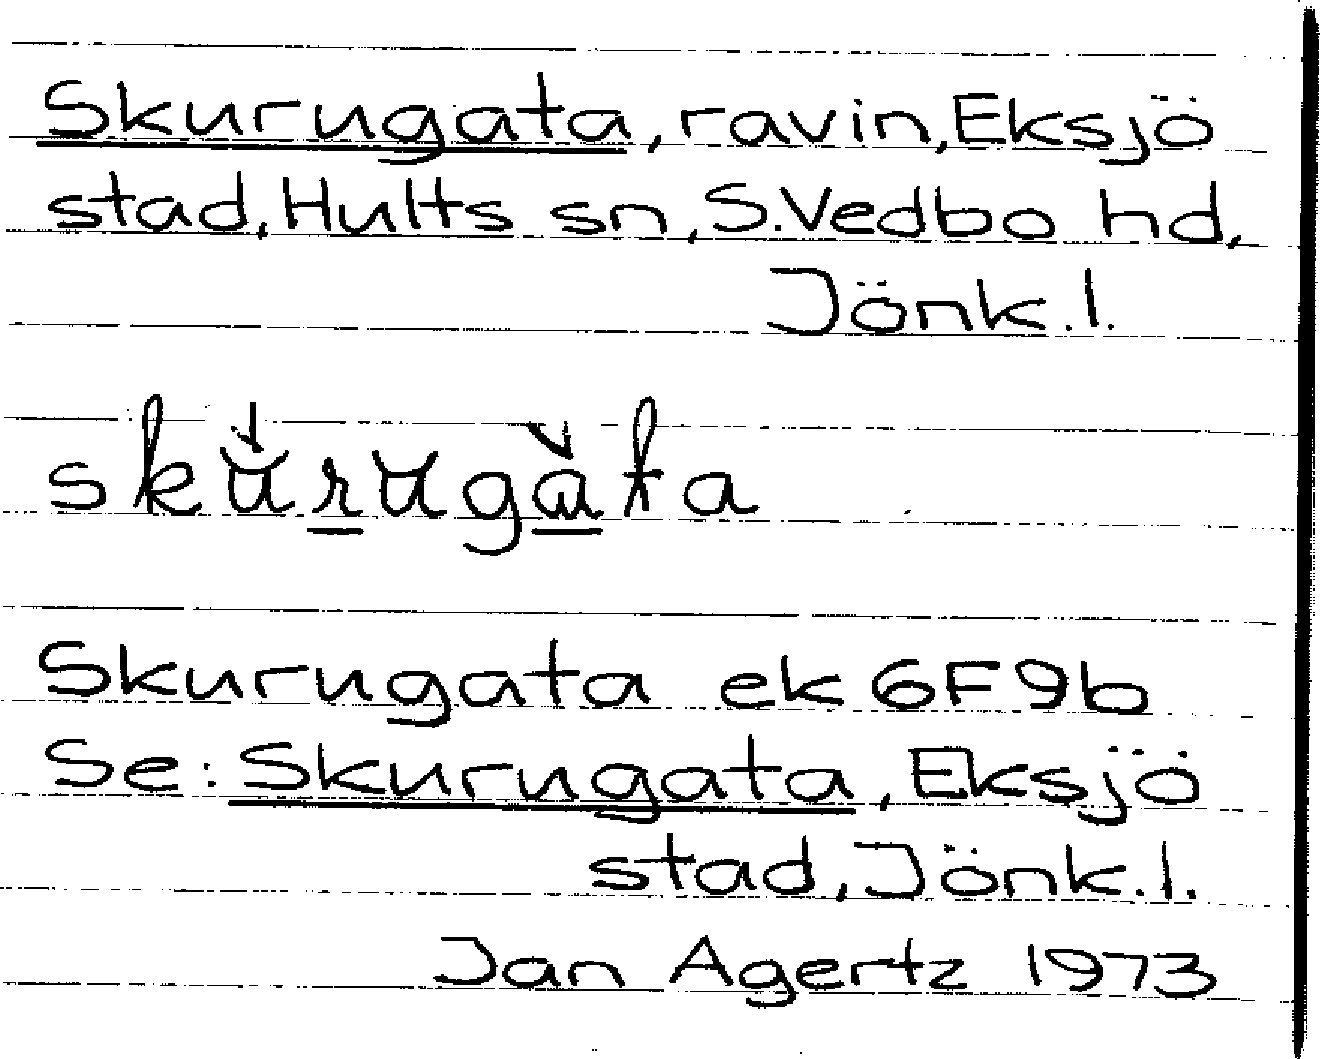 Skurugata, ravin, Eksjö
stad, Hults sn, S. Vedbo hd,
Jönk. l.
skùrugàta
Skurugata ek 6F9b
Se: Skurugata, Eksjö
stad, Jönk. l.
Jan Agertz 1973